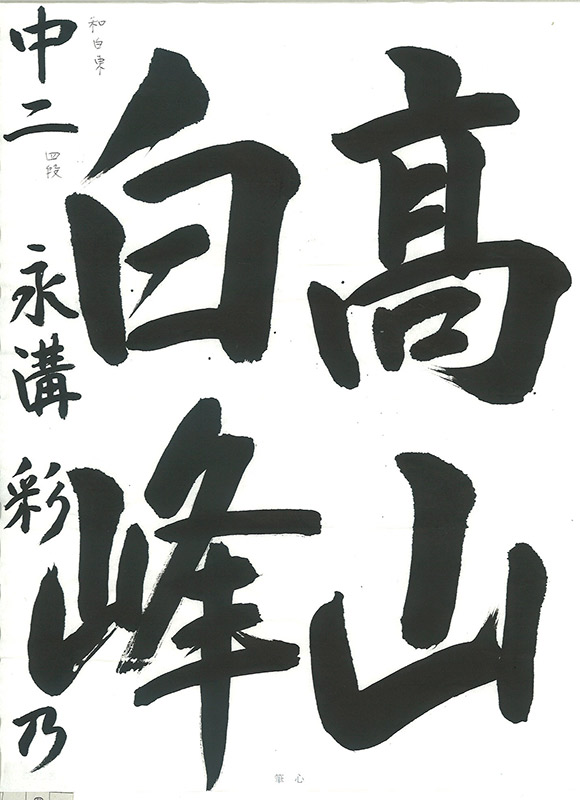 髙山
白峰
和白東
四段
中二 永溝 彩乃
筆心